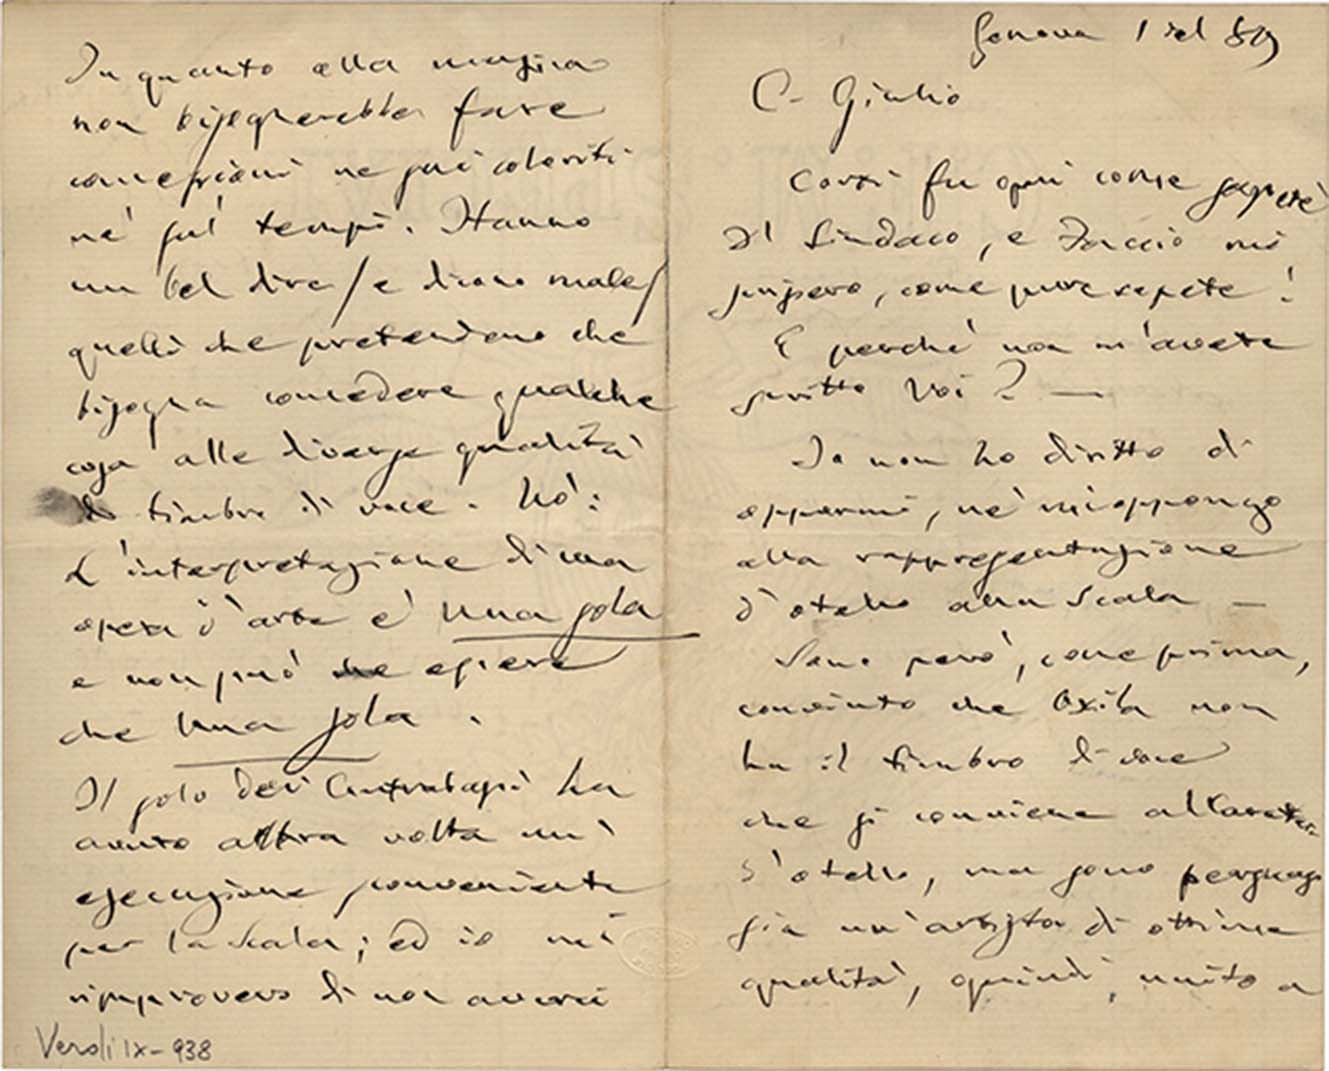 Genova 1 del 89
C. Giulio
Corti fu qui come sapete
Il Sindaco, e Faccio mi
scrissero, come pure sapete!
E perchè non m'avete
scritto Voi? —
Io non ho diritto di
oppormi, nè mi oppongo
alla rappresentazione
d'Otello alla Scala —
Sono però, come prima,
convinto che Oxilia non
ha il timbro di voce
che si conviene al carattere
d'Otello, ma sono persuaso
sia un'artista di ottime
qualità, quindi, unito a
In quanto alla musica
non bisognerebbe fare
concessioni nè sui coloriti
nè sui tempi. Hanno
un bel dire / e dicono male /
quelli che pretendono che
bisogna concedere qualche
cosa alle diverse qualità
di timbro di voce. No:
L'interpretazione di una
opera d'arte e' una sola
e non può essere
che una sola.
Il solo dei Contrabassi ha
avuto altra volta un'
esecuzione sconveniente
per la Scala; ed io mi
rimprovero di non averci
IX-938